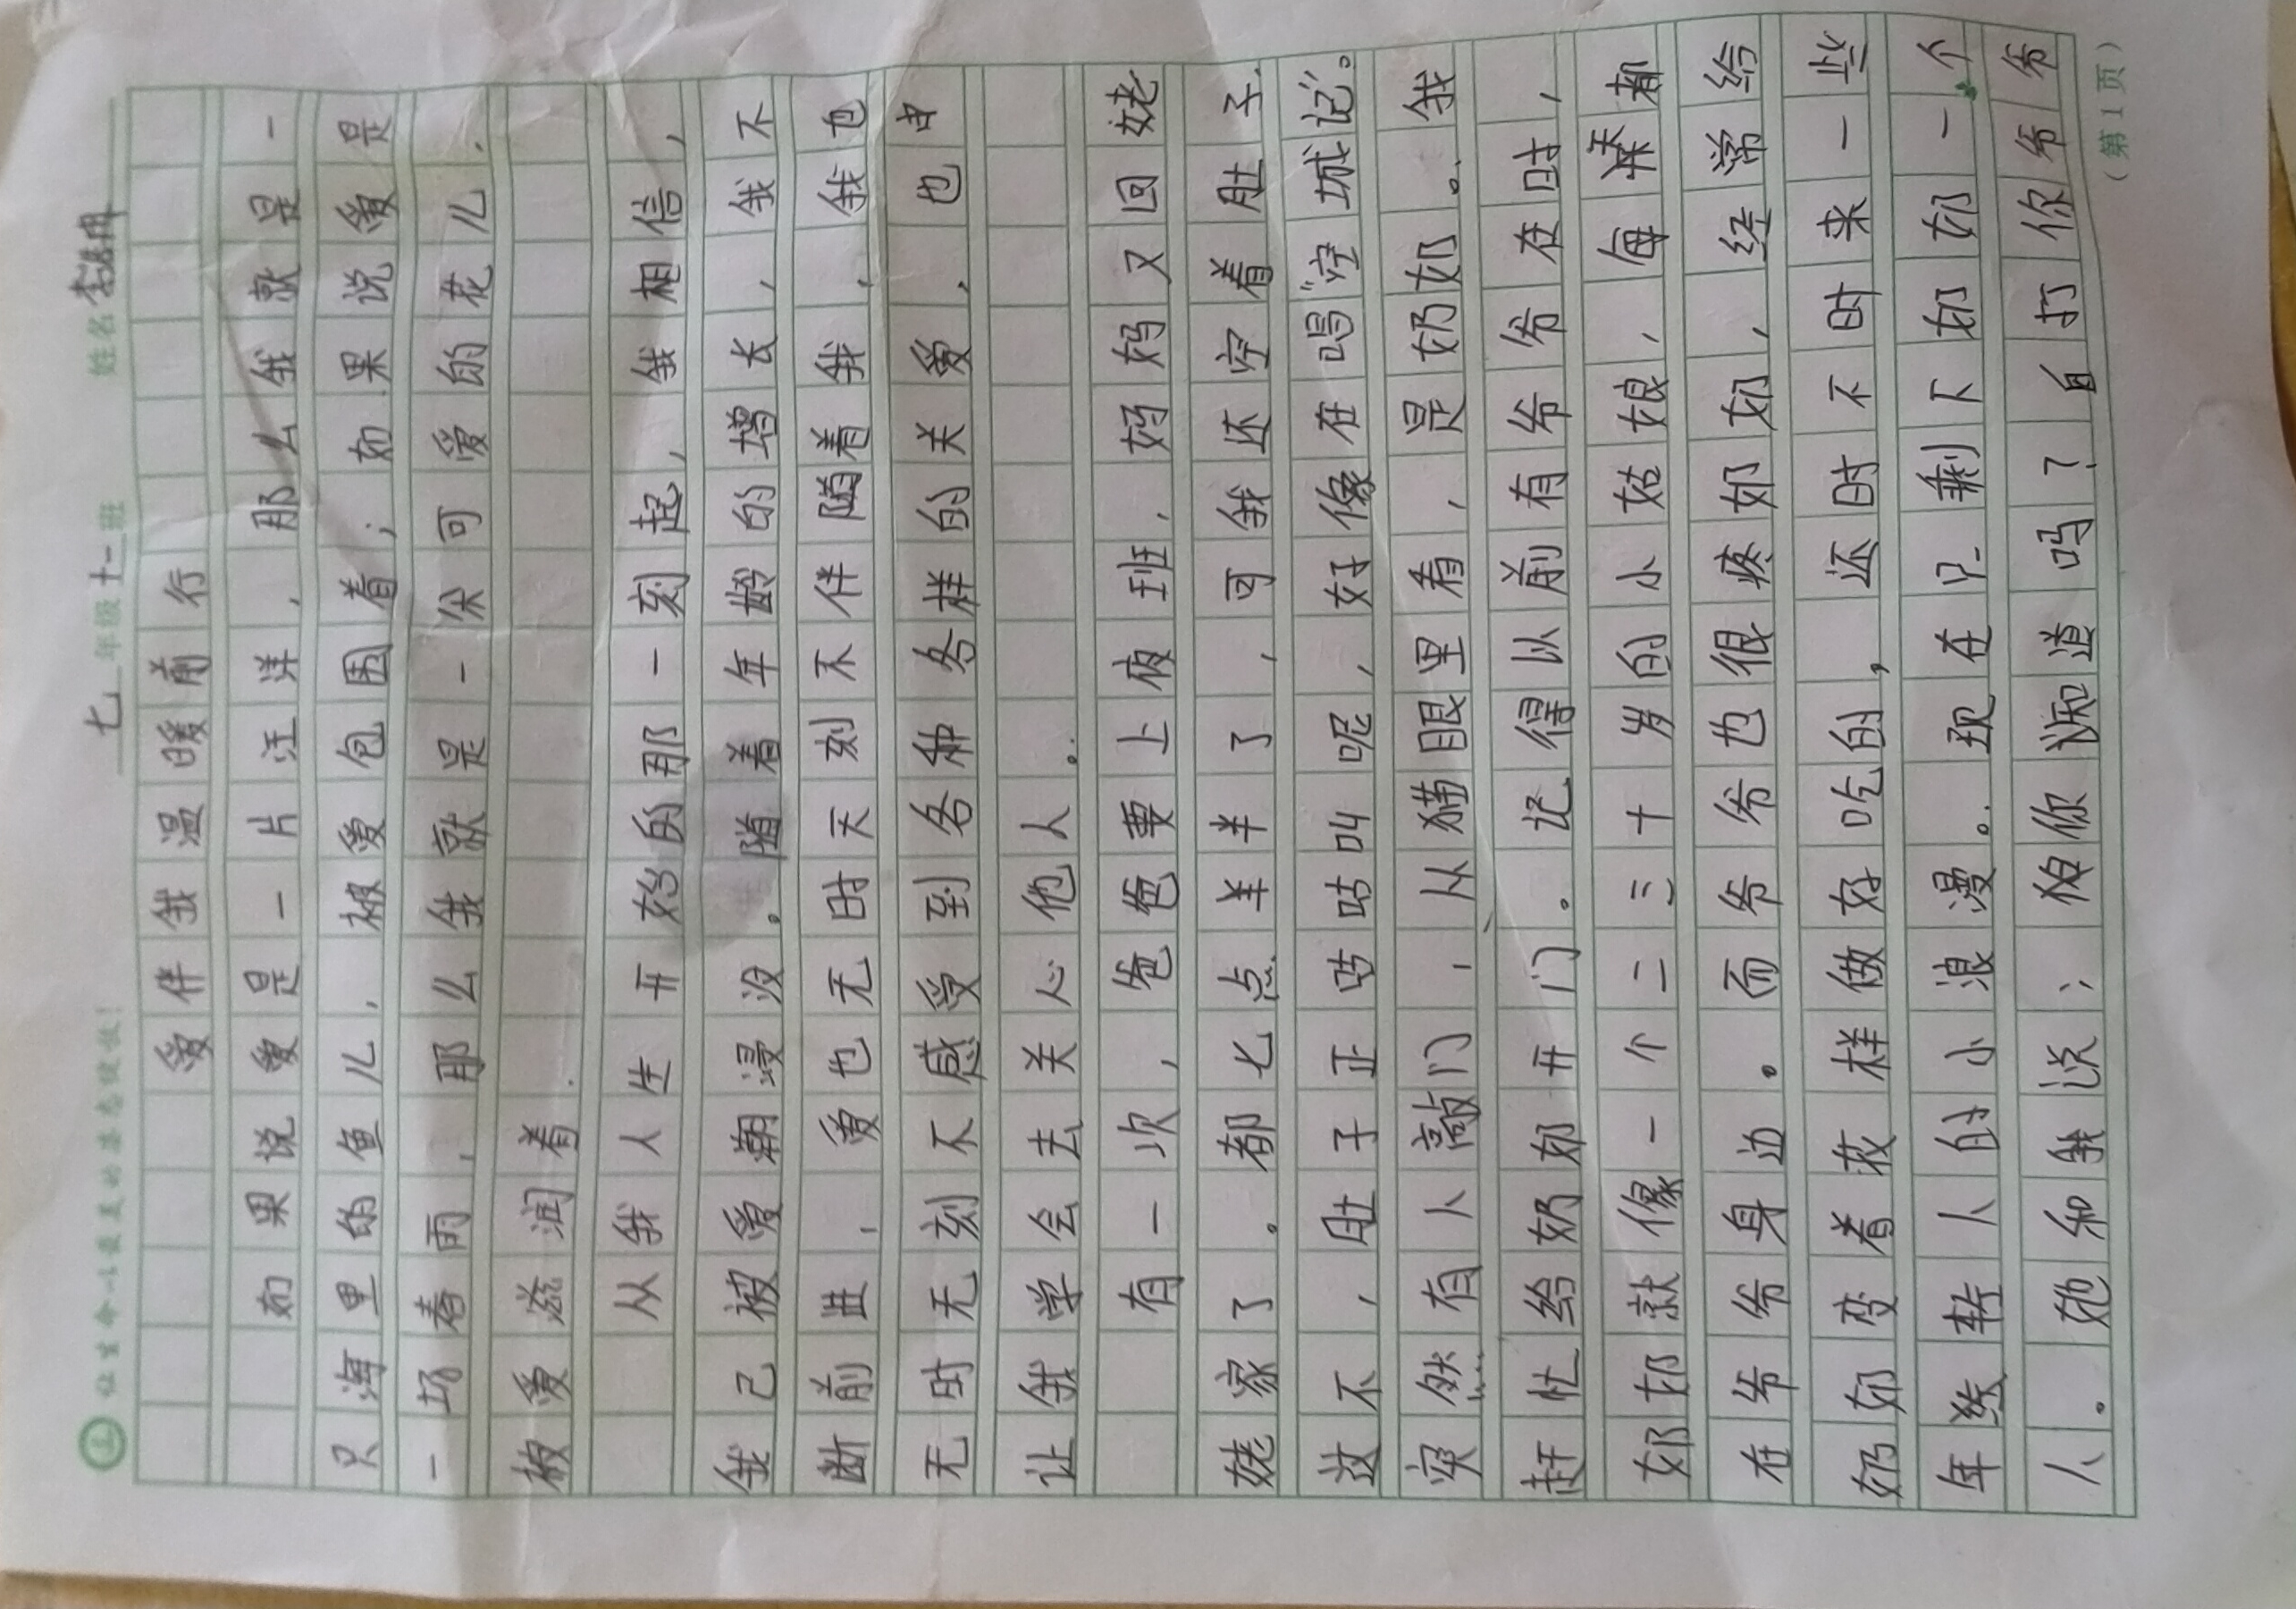 让生命以最美的姿态绽放！ 七 年级 十一 班 姓名
爱伴我温暖前行
如果说爱是一片汪洋，那么我就是一
只海里的鱼儿，被爱包围着；如果说爱是
一场春雨，那么我就是一朵可爱的花儿．
被爱滋润着．
从我人生开始的那一刻起，我相信，
我己被爱潮浸没。随着年龄的增长，我不
断前进，爱也无时无刻不伴随着我，我也
无时无刻不感受到各种各样的关爱，也
让我学会去关心他人。
有一次，爸爸要上夜班，妈妈又回姥
姥家了。都七点半半了，可我还空着肚子．
这不，肚子正咕咕叫呢，好像在唱“空城记”。
突然有人敲门，从猫眼里看，是奶奶。我
赶忙给奶奶开门。记得以前有爷爷在时，
奶奶就像一个二三十岁的小姑娘，每天都
在爷爷身边。而爷爷也很疼奶奶，经常给
奶奶变着花样做好吃的，还时不时来一些
年轻人的小浪漫。现在只剩下奶奶一个
人。她和我说：彼你知道吗？自打你爷爷
（第1页）